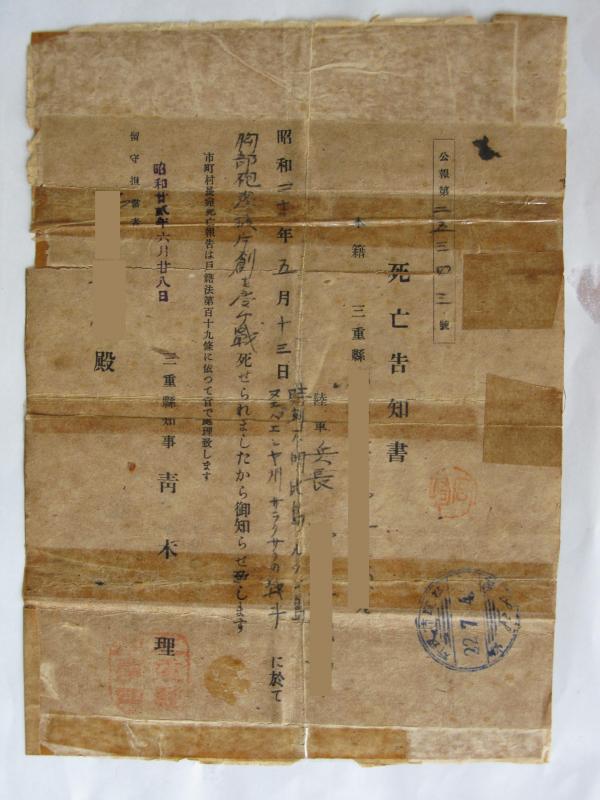 公報第二五三四三號
死亡告知書
本籍 三重縣
陸軍兵長
時刻不明比島ルソン島
昭和二十年五月十三日 ヌエバエシヤ州サラクサクの戦斗に於て
胸部砲弾破片創を受ケ戦死せられましたから御知らせ致します
市町村長宛死亡報告は戸籍法第百十九條に依つて官で処理致します
昭和廿貮年六月廿八日
三重縣知事 靑木 理
留守担當者
殿
22.7.4